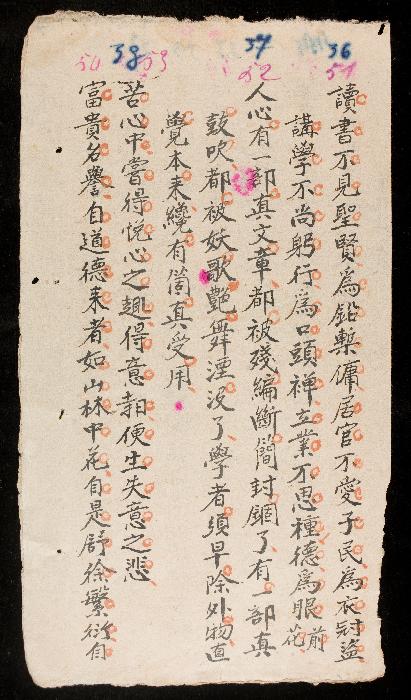 36
51
37
52
38
53
54
讀書不見聖賢為鉛槧傭居官不愛子民為衣冠盜
講學不尚躬行為口頭禅立業不思種德為眼前花
人心有一部真文章都被殘編斷簡封錮了有一部真
鼓吹都被妖歌艶舞湮没了學者須早除外物直
覺本来纔有箇真受用
苦心中嘗得悅心之趣得意時便生失意之悲
富貴名譽自道德来者如山林中花自是舒徐繁衍自